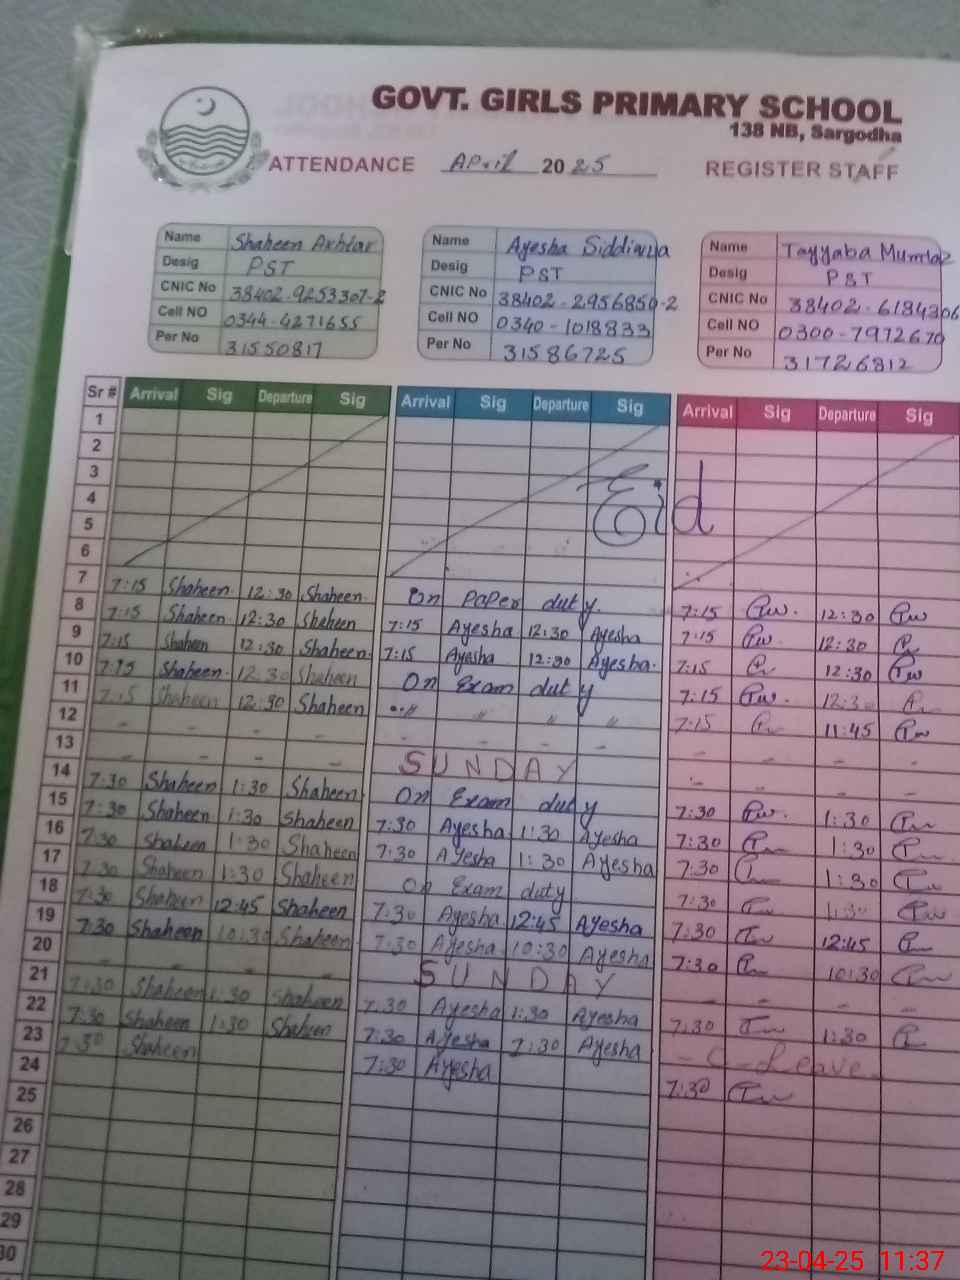 GOVT. GIRLS PRIMARY SCHOOL
138 NB, Sargodha
ATTENDANCE April 2025 REGISTER STAFF
Name Shaheen Akhtar Name Ayesha Siddiqua Name Tayyaba Mumtaz
Desig PST Desig PST Desig PST
CNIC No 38402-9253307-2 CNIC No 38402-2956850-2 CNIC No 38402-6184306
Cell NO 0344-4271655 Cell NO 0340-1018833 Cell NO 0300-7972670
Per No 31550817 Per No 31586725 Per No 31726812
Sr # Arrival Sig Departure Sig Arrival Sig Departure Sig Arrival Sig Departure Sig
1
2
3
4 Eid
5
6
7 7:15 Shaheen 12:30 Shaheen On Paper duty 7:15 12:30
8 7:15 Shaheen 12:30 Shaheen 7:15 Ayesha 12:30 Ayesha 7:15 12:30
9 7:15 Shaheen 12:30 Shaheen 7:15 Ayesha 12:30 Ayesha 7:15 12:30
10 7:15 Shaheen 12:30 Shaheen On Exam duty 7:15 12:30
11 7:15 Shaheen 12:30 Shaheen " " " " 7:15 11:45
12 - - - - - - - - - -
13 - - - - SUNDAY - -
14 7:30 Shaheen 1:30 Shaheen On Exam duty 7:30 1:30
15 7:30 Shaheen 1:30 Shaheen 7:30 Ayesha 1:30 Ayesha 7:30 1:30
16 7:30 Shaheen 1:30 Shaheen 7:30 Ayesha 1:30 Ayesha 7:30 1:30
17 7:30 Shaheen 1:30 Shaheen On Exam duty 7:30 1:30
18 7:30 Shaheen 12:45 Shaheen 7:30 Ayesha 12:45 Ayesha 7:30 12:45
19 7:30 Shaheen 10:30 Shaheen 7:30 Ayesha 10:30 Ayesha 7:30 10:30
20 - - - - SUNDAY - - - -
21 7:30 Shaheen 1:30 Shaheen 7:30 Ayesha 1:30 Ayesha 7:30 1:30
22 7:30 Shaheen 1:30 Shaheen 7:30 Ayesha 7:30 Ayesha - C-Leave
23 7:30 Shaheen 7:30 Ayesha 7:30
24
25
26
27
28
29
30
23-04-25 11:37